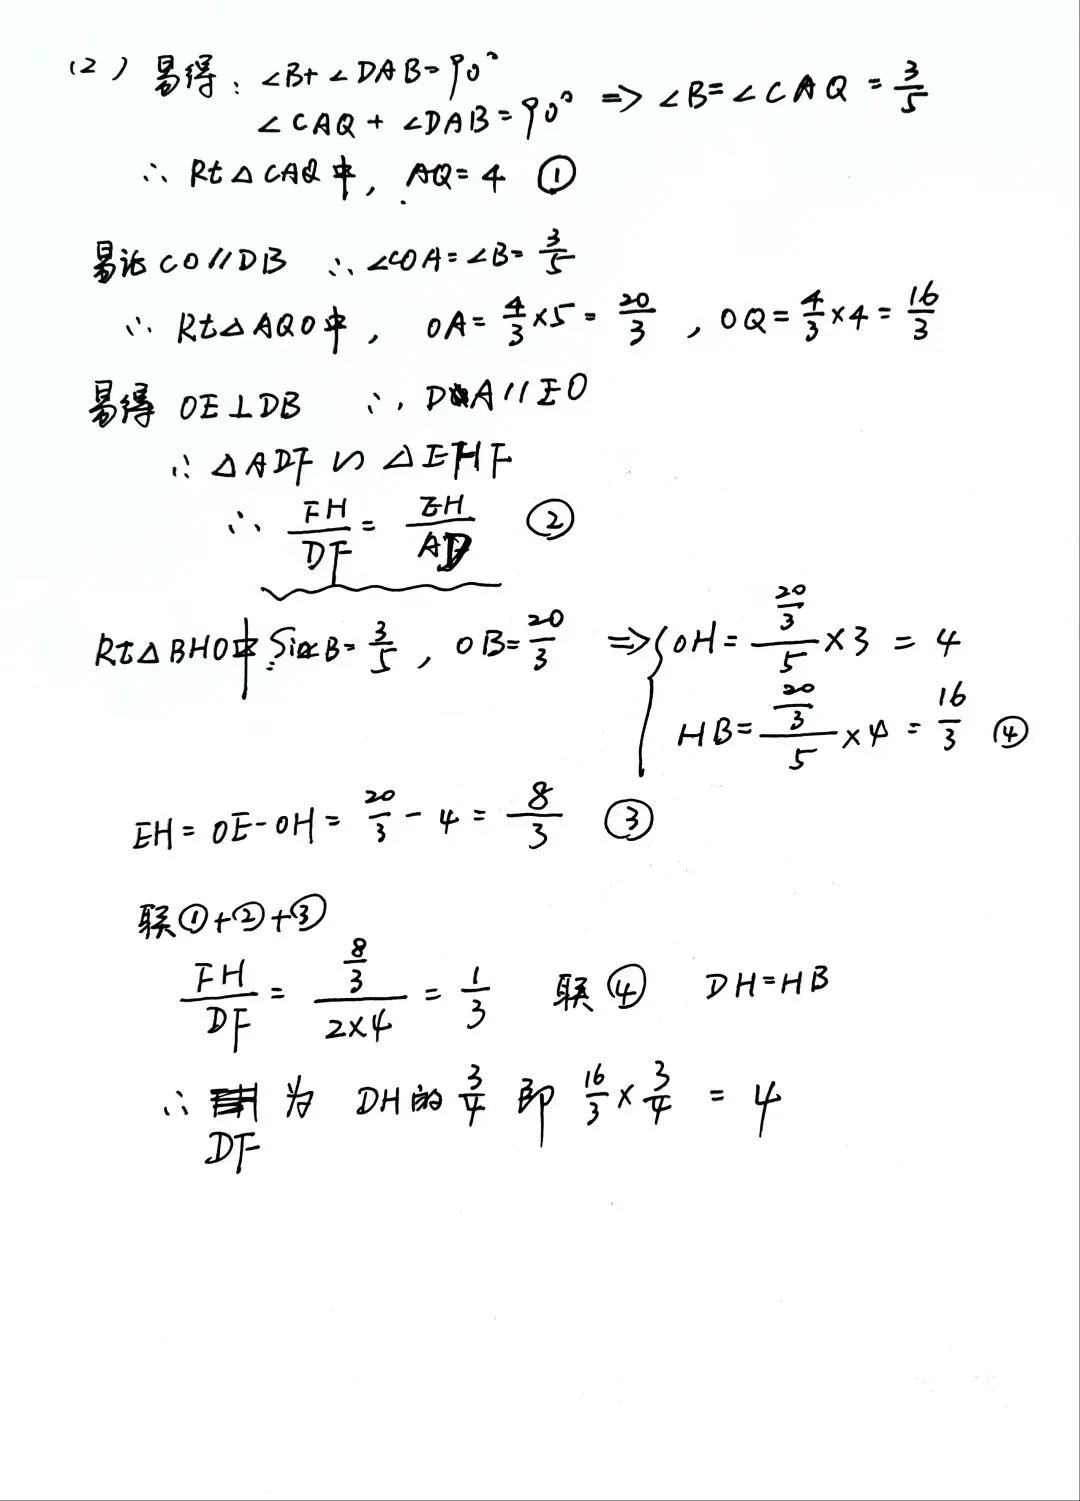 (2) 易得: ∠B+∠DAB=90°
∠CAQ+∠DAB=90° => ∠B=∠CAQ=3/5
∴ Rt△CAQ中, AQ=4 ①
易证CO//DB ∴∠COA=∠B=3/5
∴ Rt△AQO中, OA=4/3×5=20/3, OQ=4/3×4=16/3
易得 OE⊥DB ∴ DA//EO
∴ △ADF∽△EHF
∴ FH/DF=EH/AD ②
Rt△BHO中 SinB=3/5, OB=20/3 => { OH=(20/3)/5×3=4
HB=(20/3)/5×4=16/3 ④
EH=OE-OH=20/3-4=8/3 ③
联①+②+③
FH/DF=(8/3)/(2×4)=1/3 联④ DH=HB
∴ DF 为 DH的3/4 即 16/3×3/4=4